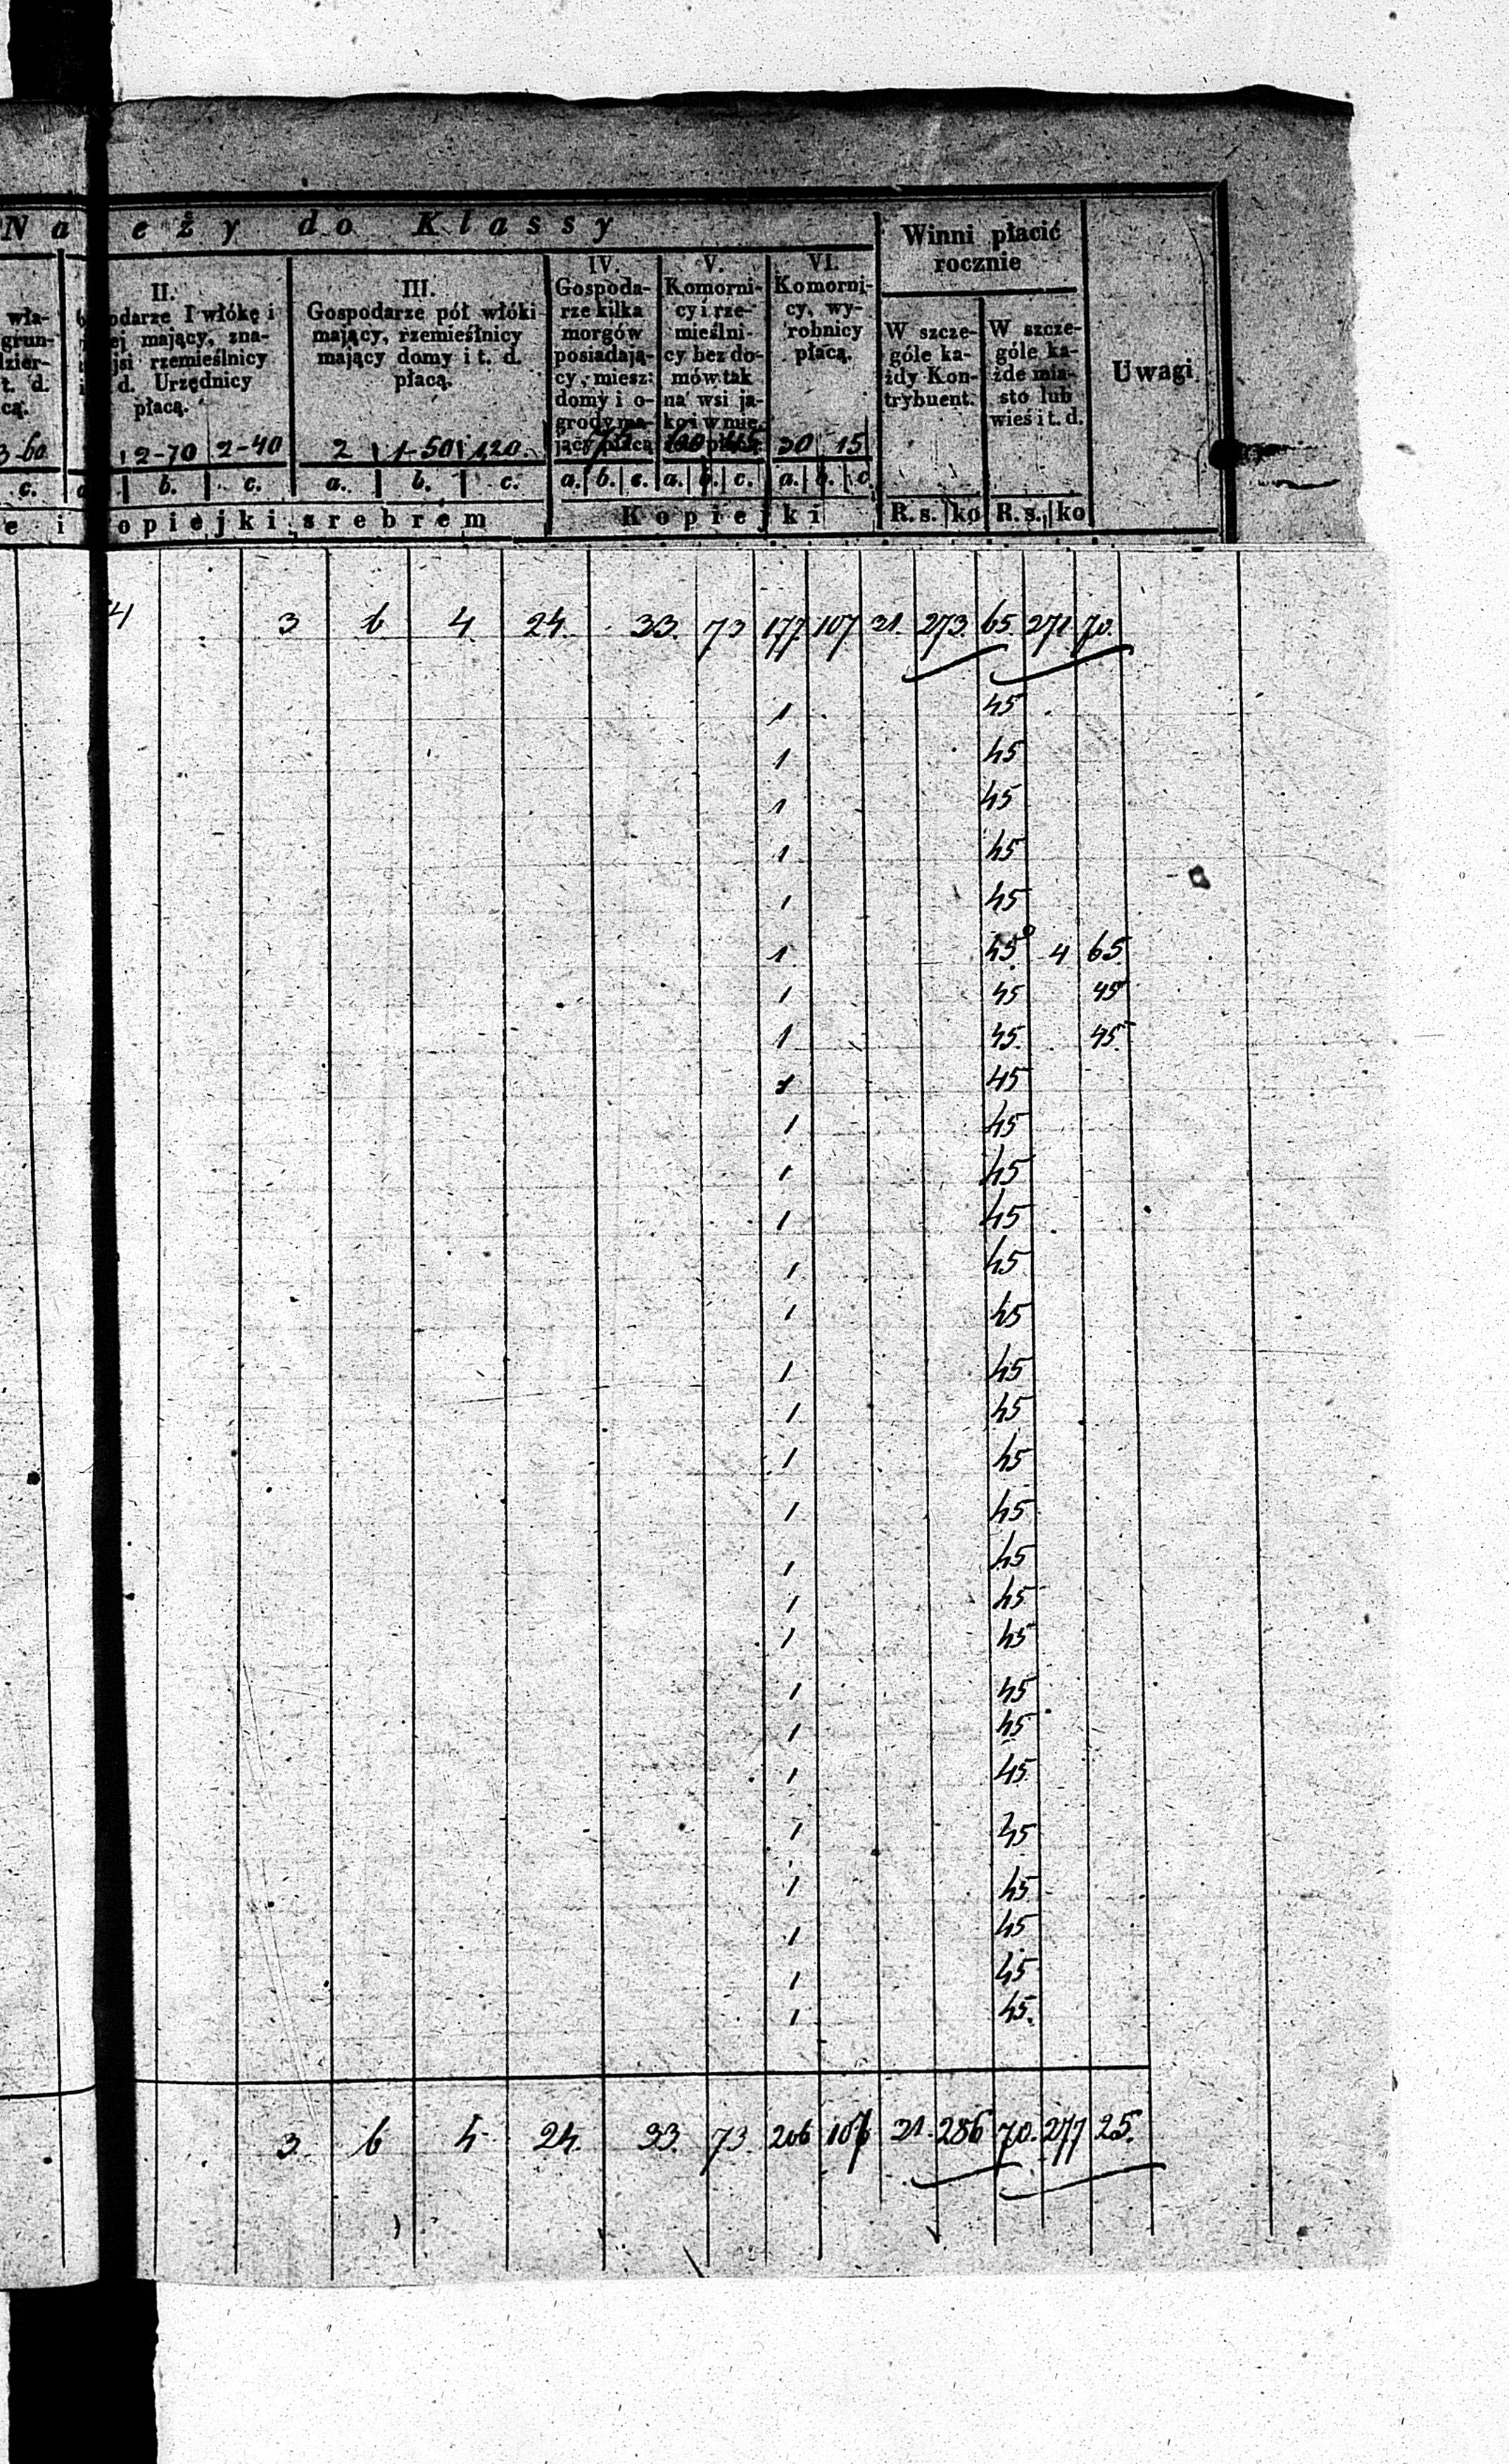 Na eży do Klassy
Winni płacić rocznie
Uwagi
wła-
grun-
dzier-
t. d.
cą.
3-60
c.
II.
odarze I włókę i
ej mający, zna-
jsi rzemieślnicy
i d. Urzędnicy
płacą.
2-70 2-40
b. c.
III.
Gospodarze pół włóki
mający, rzemieślnicy
mający domy i t. d.
płacą.
2 1-50 1,20
a. b. c.
IV.
Gospoda-
rze kilka
morgów
posiadają-
cy, miesz:
domy i o-
grody ma-
jący płacą
a. b. c.
V.
Komorni-
cy i rze-
mieślni-
cy bez do-
mów tak
na wsi ja-
ko i w mie.
a. b. c.
VI.
Komorni-
cy, wy-
robnicy
płacą.
30 15
a. b. c.
W szcze-
góle ka-
żdy Kon-
trybuent.
W szcze-
góle ka-
żde mia-
sto lub
wieś i t. d.
e i opiejki srebrem Kopiejki R. s. ko R. s. ko
4 3 6 4 24. 33. 73 177 107 21. 273. 65. 271 70.
1 45
1 45
1 45
1 45
1 45
1 45 4 65.
1 45 45
1 45. 45.
1 45
1 45
1 45
1 45
1 45
1 45
1 45
1 45
1 45
1 45
1 45
1 45
1 45
1 45
1 45
1 45.
1 45
1 45
1 45
1 45
1 45.
3. 6 4 24. 33. 73. 206 107 21. 286 70. 277 25.